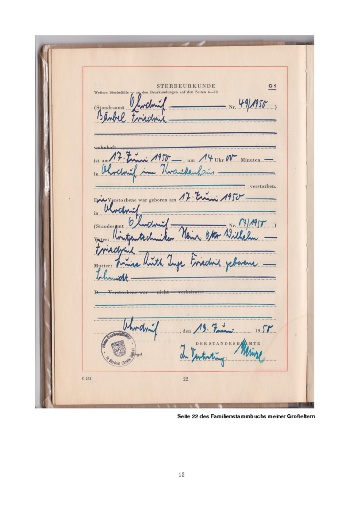 STERBEURKUNDE G 4
(Standesamt Ohrdruf Nr. 49/1950)
Bärbel Friedrich
wohnhaft
ist am 17. Juni 1950 um 14 Uhr 00 Minuten
in Ohrdruf im Krankenhaus
verstorben.
Die Verstorbene war geboren am 17. Juni 1950
in Ohrdruf
(Standesamt Ohrdruf Nr. /1950)
Vater: Röntgentechniker Wilhelm
Friedrich
Mutter: Ruth Inge Friedrich geborene
Schmidt
D Verstorbene war nicht verheiratet
Ohrdruf, den 19. Juni 1950
DER STANDESBEAMTE
In Vertretung
22
Seite 22 des Familienstammbuchs meiner Großeltern